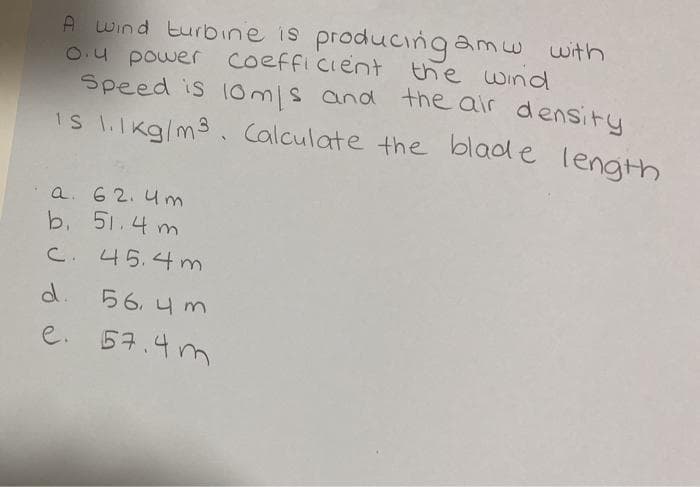 A wind turbine is producing 2mw with
0.4 power coefficient the wind
Speed is 10m/s and the air density
is 1.1kg/m³. Calculate the blade length
a. 62.4m
b. 51.4m
c. 45.4m
d. 56.4m
e. 57.4m